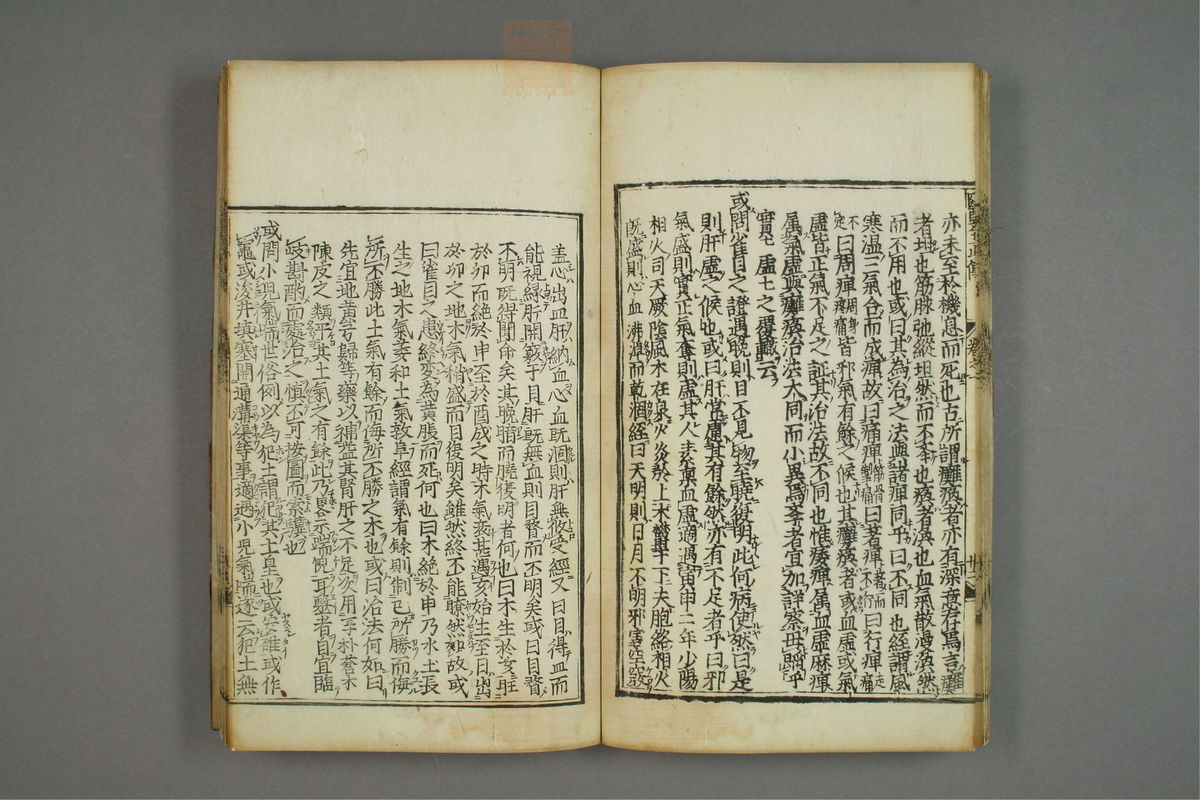 亦未至於機息而死也古所謂癱瘓者亦有深意存焉言癱
者坦也筋脉弛縱坦然而不舉也瘓者渙也血氣散漫渙然
而不用也或曰其為治之法與諸痺同乎曰不同也經謂風
寒温三氣合而成痺故曰痛痺筋骨掣痛曰著痺著而不行曰行痺走痛
不定曰周痺周身疼痛皆邪氣有餘之候也其癱瘓者或血虛或氣
虛皆正氣不足之証其治法故不同也惟痿痺属血虛麻痺
属氣虛與癱瘓治法大同而小異焉學者宜加詳察毋賸乎
實實虛虛之覆轍云
或問雀目之證遇晚則目不見物至曉復明此何病使然曰是
則肝虛之候也或曰肝常慮其有餘然亦有不足者乎曰邪
氣盛則實正氣奪則虛其人素稟血虛適遇寅申二年少陽
相火司天厥陰風木在泉火炎於上木鬱于下夫胞絡相火
既盛則心血沸淖而乾涸經曰天明則日月不明邪害空竅
盖心出血肝納血心血既涸則肝無攸受經又曰目得血而
能視緑肝開竅于目肝既無血則目瞀而不明矣或曰目瞀
不明既得聞命矣其晚暗而曉復明者何也曰木生於亥旺
於卯而絶於申至於酉戌之時木氣衰甚遇亥始生至日出
於卯之地木氣稍盛而目復明矣雖然終不能瞭然如故或
曰雀目之患終変為黄脹而死何也曰木絶於申乃水土長
生之地木氣萎和土氣敦阜經謂氣有餘則制已所勝而侮
所不勝此土氣有餘而侮所不勝之木也或曰治法何如曰
先宜地黄芎歸等藥以補益其腎肝之不足次用厚朴蒼木
陳皮之類平其土氣之有餘此乃畧示端倪耳毉者自宜臨
岐斟酌而處治之慎不可按圖而索驥也
或問小児氣喘世俗例以為犯土謂犯其土皇也或安確或作
竈或浚井填塞開通溝渠等事適遇小児氣喘遂云犯土無